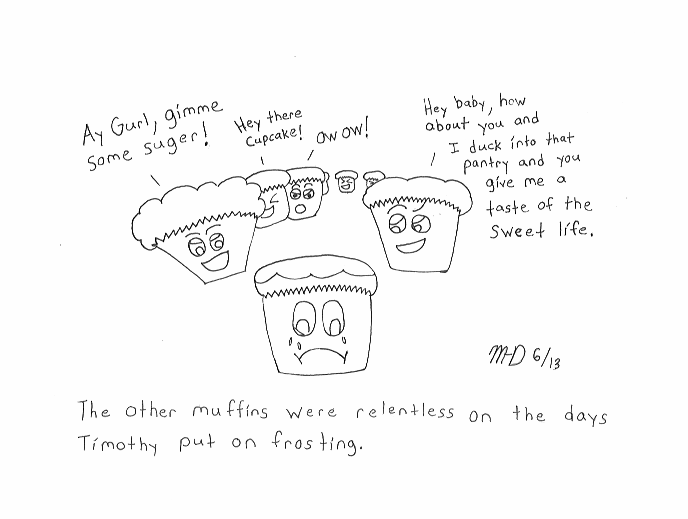 Ay Gurl, gimme
some suger!
Hey there
Cupcake!
OW OW!
Hey baby, how
about you and
I duck into that
pantry and you
give me a
taste of the
sweet life.
M-D 6/13
The other muffins were relentless on the days
Timothy put on frosting.